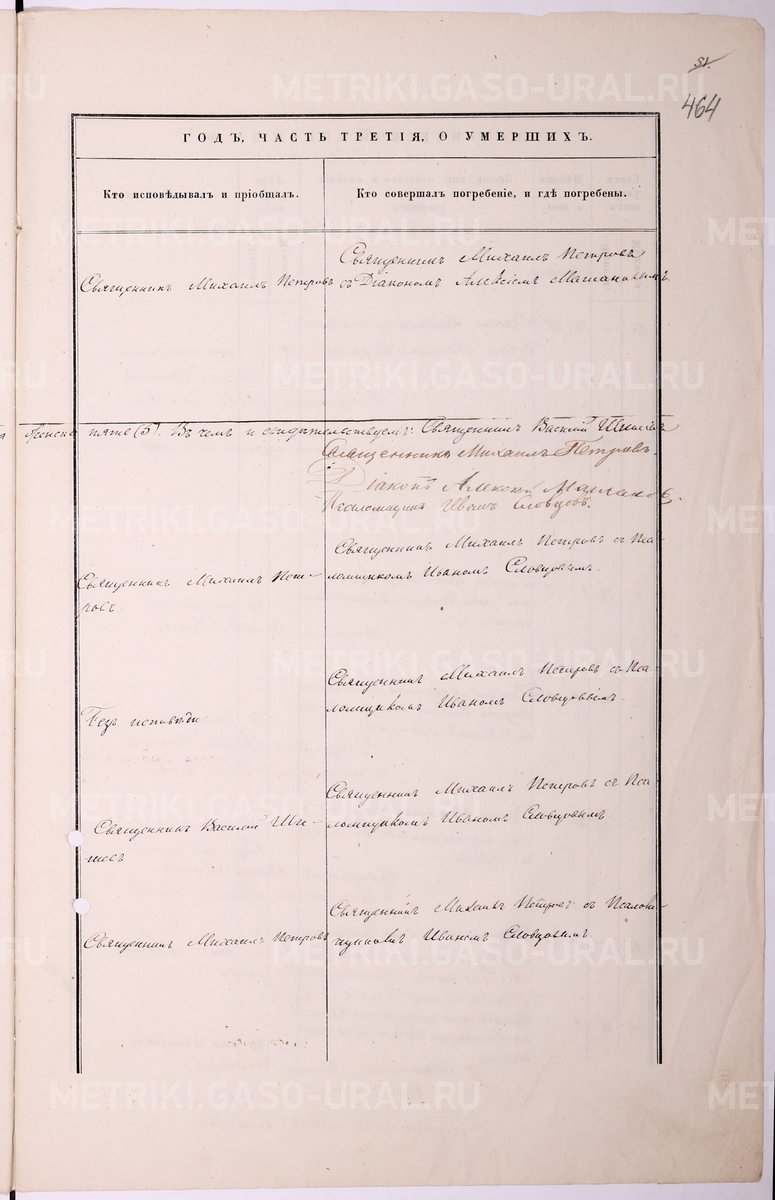 51.
464
ГОДЪ, ЧАСТЬ ТРЕТІЯ, О УМЕРШИХЪ.
Кто исповѣдывалъ и пріобщалъ.
Кто совершалъ погребеніе, и гдѣ погребены.
Священникъ Михаилъ Петровъ
Священникъ Михаилъ Петровъ
съ Діакономъ Алексіемъ
пять (5). Въ чемъ и свидѣтельствуемъ: Священникъ Василій
Священникъ Михаилъ Петровъ.
Діаконъ Алексѣй
Псаломщикъ Иванъ Словцовъ.
Священникъ Михаилъ Пет-
ровъ.
Священникъ Михаилъ Петровъ съ Пса-
ломщикомъ Иваномъ Словцовымъ.
Безъ исповѣди
Священникъ Михаилъ Петровъ съ Пса-
ломщикомъ Иваномъ Словцовымъ.
Священникъ Василій
Священникъ Михаилъ Петровъ съ Пса-
ломщикомъ Иваномъ Словцовымъ
Священникъ Михаилъ Петровъ
Священникъ Михаилъ Петровъ съ Псалом-
щикомъ Иваномъ Словцовымъ.
METRIKI.GASO-URAL.RU